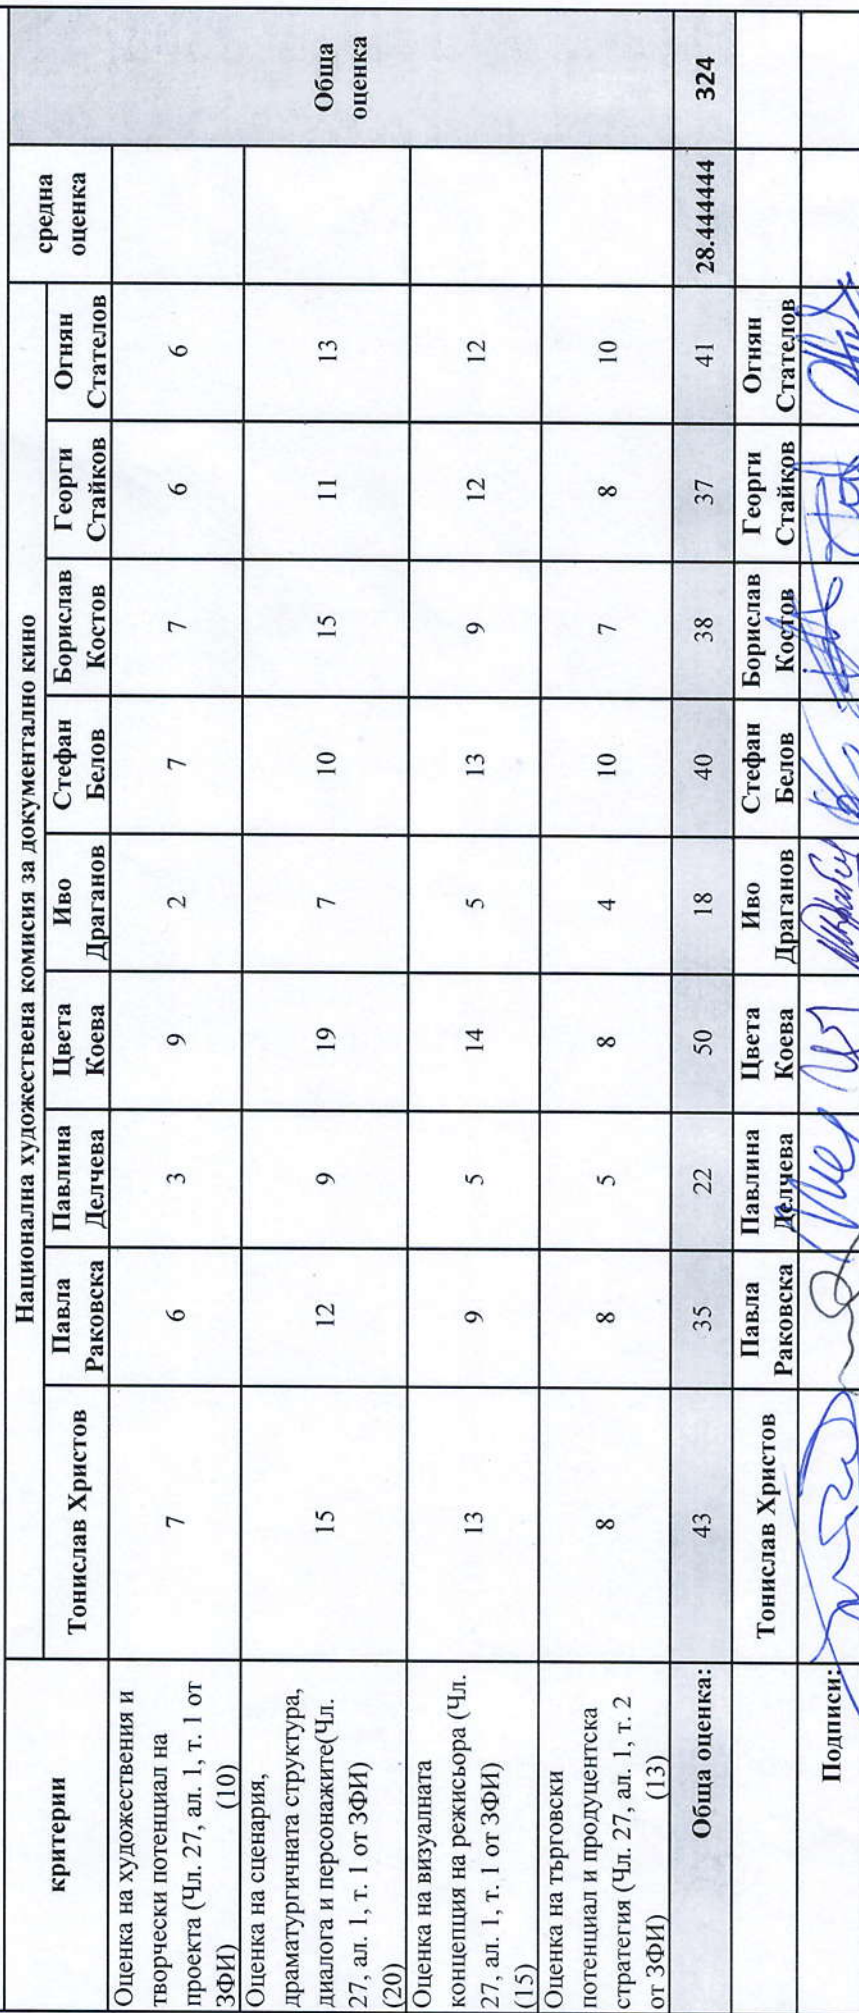 критерии
Национална художествена комисия за документално кино
средна
оценка
Обща
оценка
Тонислав Христов
Павла
Раковска
Павлина
Делчева
Цвета
Коева
Иво
Драганов
Стефан
Белов
Борислав
Костов
Георги
Стайков
Огнян
Стателов
Оценка на художествения и
творчески потенциал на
проекта (Чл. 27, ал. 1, т. 1 от
ЗФИ) (10)
7 6 3 9 2 7 7 6 6
Оценка на сценария,
драматургичната структура,
диалога и персонажите(Чл.
27, ал. 1, т. 1 от ЗФИ)
(20)
15 12 9 19 7 10 15 11 13
Оценка на визуалната
концепция на режисьора (Чл.
27, ал. 1, т. 1 от ЗФИ)
(15)
13 9 5 14 5 13 9 12 12
Оценка на търговски
потенциал и продуцентска
стратегия (Чл. 27, ал. 1, т. 2
от ЗФИ) (13)
8 8 5 8 4 10 7 8 10
Обща оценка: 43 35 22 50 18 40 38 37 41 28.444444 324
Тонислав Христов
Павла
Раковска
Павлина
Делчева
Цвета
Коева
Иво
Драганов
Стефан
Белов
Борислав
Костов
Георги
Стайков
Огнян
Стателов
Подписи: